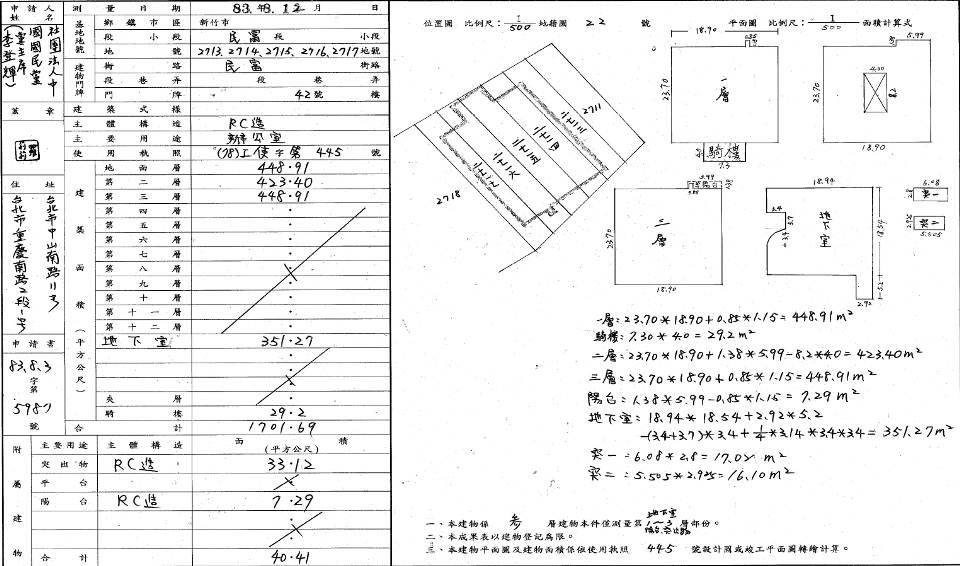 申請人姓名
社團法人中國國民黨
黨主席
(李登輝)
蓋章
住址
台北市中山南路11号
台北市重慶南路2段1号
申請書
83.8.3
字第
5987
號
測量日期 83.8.12 月 日
基地地號
鄉鎮市區 新竹市
段 小段 民富 段 小段
地號 2713.2714.2715.2716.2717地號
建物門牌
街路 民富 街路
段巷弄 段 巷 弄
門牌 42號 樓
建築式樣
主體構造 RC造
主要用途 辦公室
使用執照 (78)工使字第 445 號
建築面積(平方公尺)
地面層 448.91
第二層 423.40
第三層 448.91
第四層
第五層
第六層
第七層
第八層
第九層
第十層
第十一層
第十二層
地下室 351.27
夾層
騎樓 29.2
合計 1701.69
附屬建物
主要用途 主體構造 面積
(平方公尺)
突出物 RC造 33.12
平台
陽台 RC造 7.29
合計 40.41
位置圖 比例尺:1/500 地籍圖 22 號
平面圖 比例尺:1/500 面積計算式
2711
2718
18.90
23.70
一層
騎樓
7.3
5.99
23.70
4.00
8.2
18.90
5.99
陽台
23.70
三層
18.90
18.94
3.4
3.7
3.4
地下室
18.54
5.2
2.92
6.08
2.8
突一
2.925
突二
5.505
一層:23.70*18.90+0.85*1.15=448.91m²
騎樓:7.30*4.0=29.2m²
二層:23.70*18.90+1.38*5.99-8.2*4.0=423.40m²
三層:23.70*18.90+0.85*1.15=448.91m²
陽台:1.38*5.99-0.85*1.15=7.29m²
地下室:18.94*18.54+2.92*5.2
-(3.4+3.7)*3.4+1/4*3.14*3.4*3.4=351.27m²
突一:6.08*2.8=17.02m²
突二:5.505*2.925=16.10m²
一、本建物係 參 層建物本件僅測量第 地下室 1~3 層部份。
二、本成果表以建物登記為限。
三、本建物平面圖及建物面積係依使用執照 445 號設計圖或竣工平面圖轉繪計算。